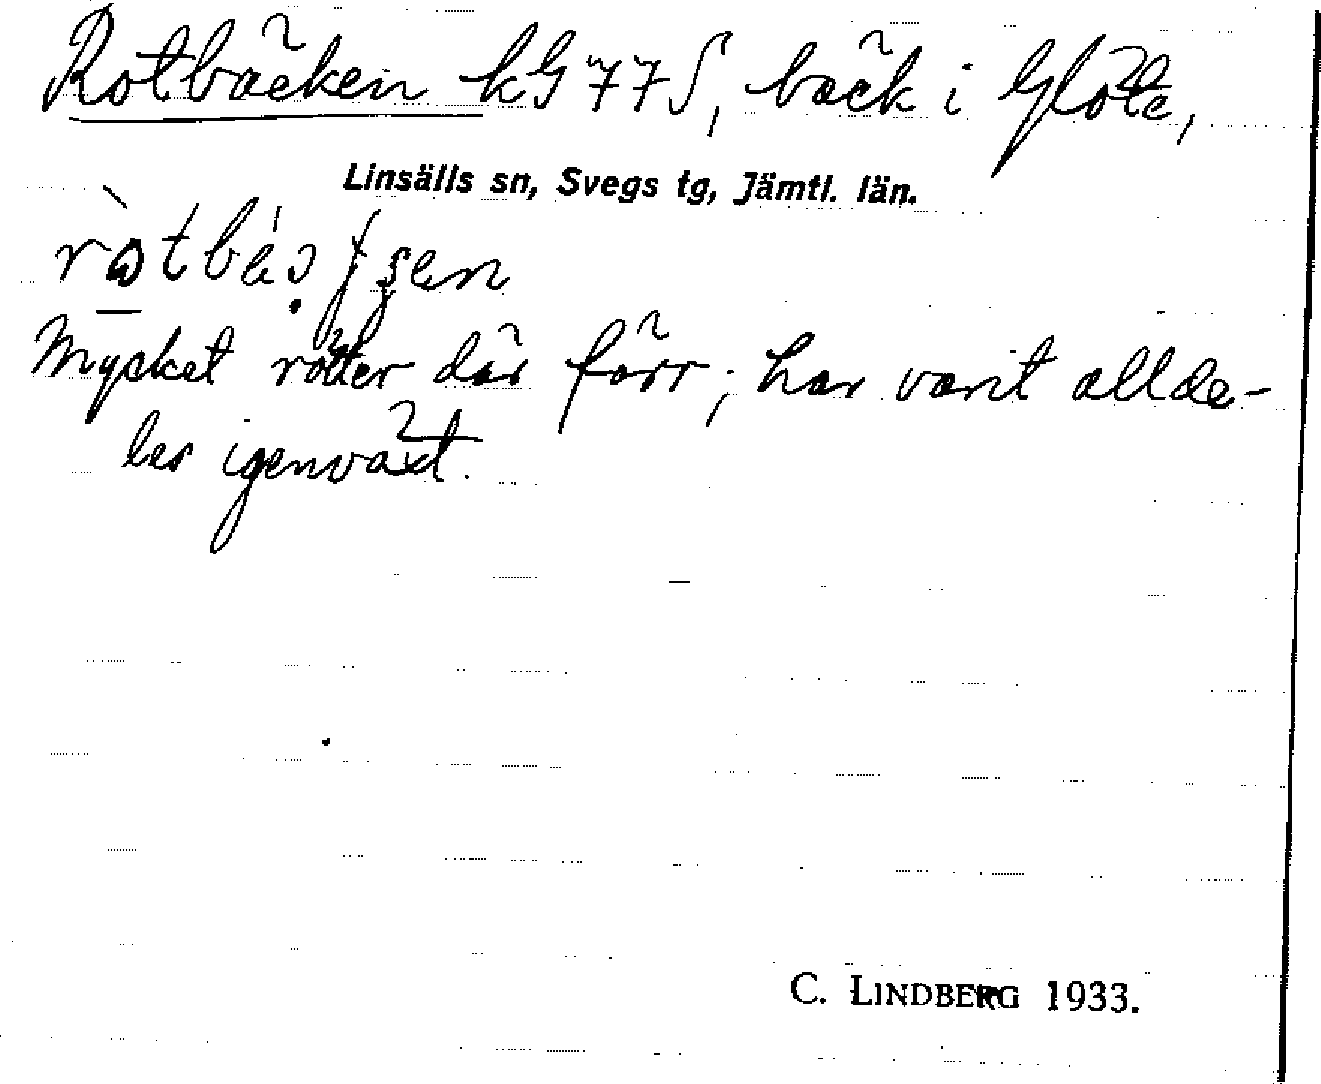 Rotbäcken kG 77 S, bäck i Glöte,
Linsälls sn, Svegs tg, Jämtl. län.
Mycket rötter där förr; har varit allde-
les igenväxt.
C. LINDBERG 1933.